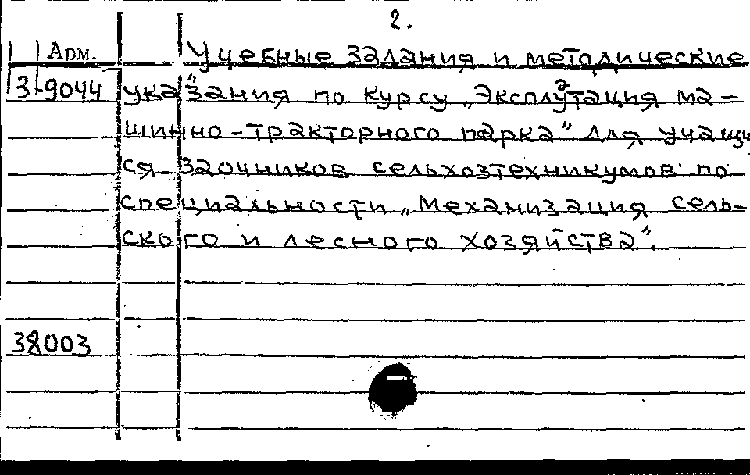 2.
Адм. Учебные задания и методические
3-9044 указания по курсу „Эксплуатация ма-
шинно-тракторного парка" для учащи
ся заочников сельхозтехникумов по
специальности „Механизация сель-
ского и лесного хозяйства".
38003